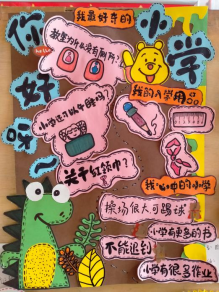 你好呀~
小学
hello
我最好奇的
教室为什么没有厕所?
我的入学用品
小学还可以午睡吗?
关于红领巾?
我心中的小学
操场很大可踢球
小学有更多的书
不能迟到
小学有很多作业